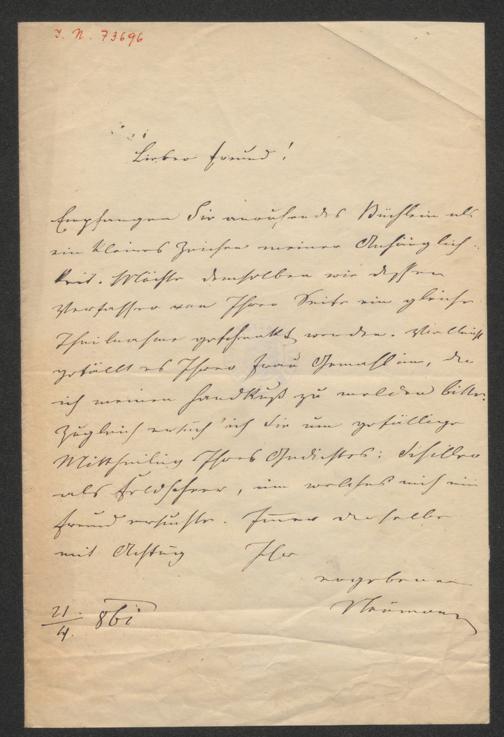 I. N. 73696
Lieber Freund!
Empfangen Sie anruhendes Büchlein als
ein kleines Zeichen meiner Anhänglich-
keit. Möchte demselben wie dessen
Verfasser von Ihrer Seite ein gleiche
Theilnahme geschenkt werden. Vielleicht
gefällt es Ihrer Frau Gemahlin, der
ich meinen Handkuß zu melden bitte.
Zugleich ersuch' ich Sie um gefällige
Mittheilung Ihres Gedichtes: Schiller
als Feldscheer, um welches mich ein
Freund ersuchte. Immer derselbe
mit Achtung Ihr
ergebener
Neumann
21/4. 861